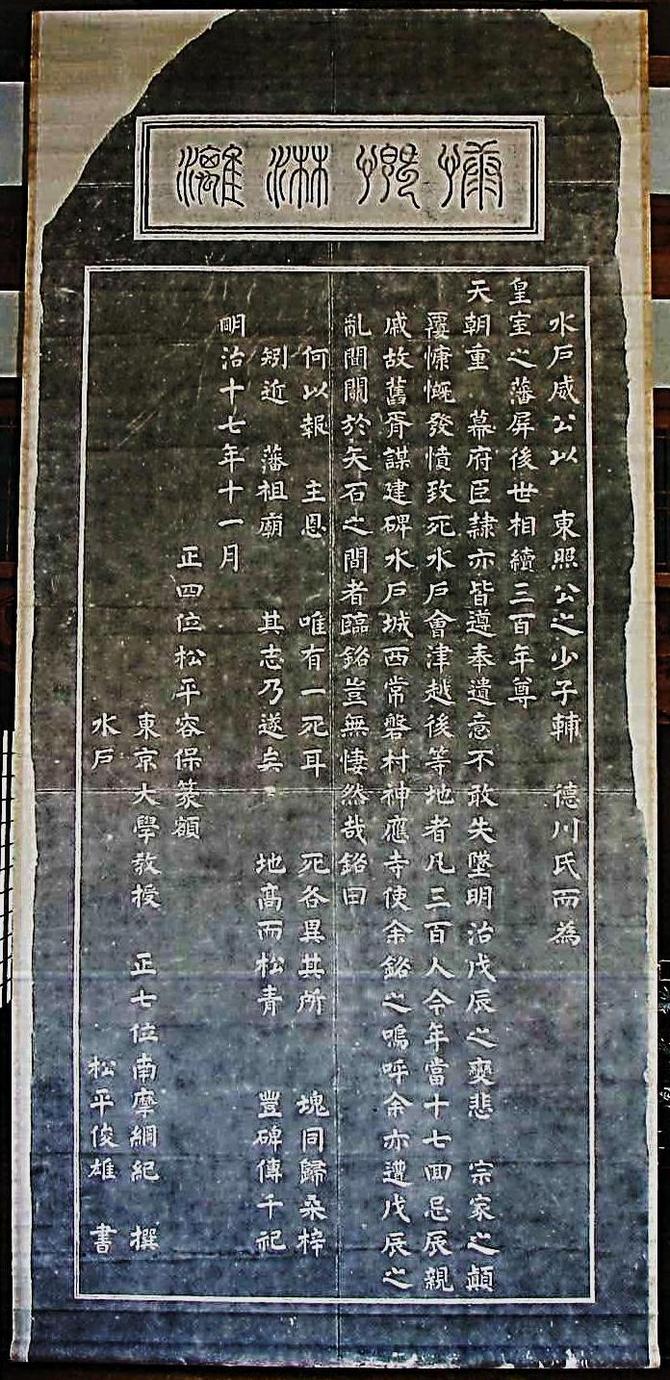 慷慨淋灕
水戶威公以 東照公之少子輔 德川氏而為
皇室之藩屏後世相續三百年尊
天朝重 幕府臣隷亦皆遵奉遺意不敢失墜明治戊辰之變悲 宗家之顚
覆慷慨發憤致死水戶會津越後等地者凡三百人今年當十七回忌辰親
戚故舊胥謀建碑水戶城西常磐村神應寺使余銘之嗚呼余亦遭戊辰之
亂間關於矢石之間者臨銘豈無悽然哉銘曰
何以報 主恩 唯有一死耳 死各異其所 塊同歸桑梓
矧近 藩祖廟 其志乃遂矣 地高而松青 豐碑傳千祀
明治十七年十一月
正四位松平容保篆額
東京大學教授 正七位南摩綱紀 撰
水戶 松平俊雄 書